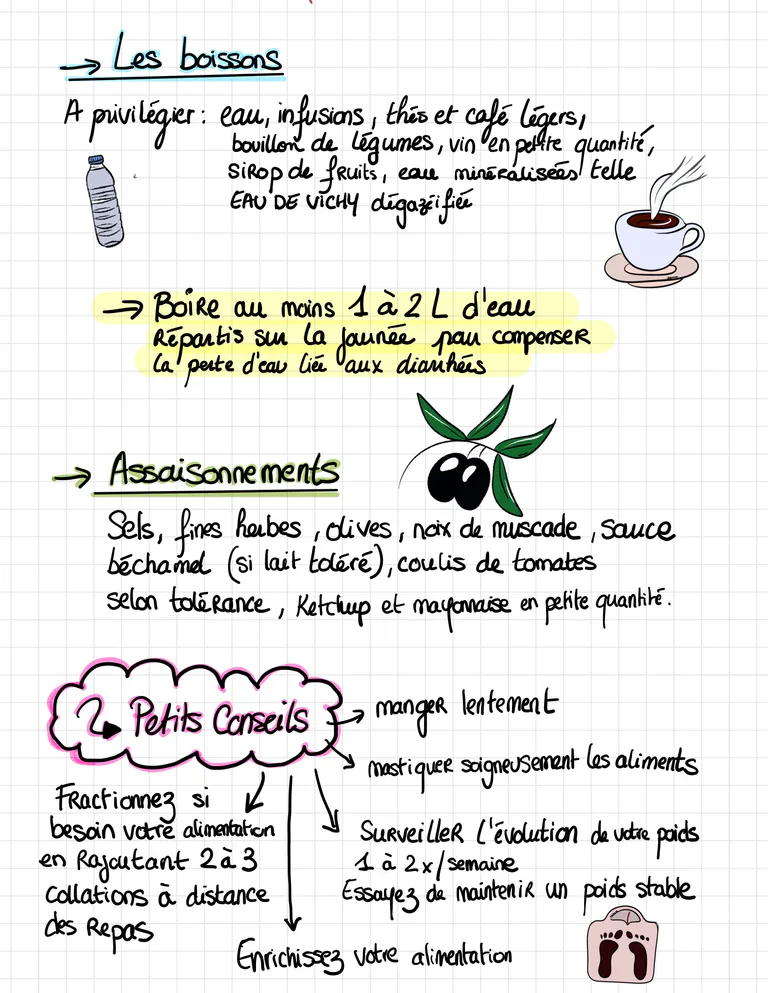 → Les boissons
A privilégier : eau, infusions, thés et café légers,
bouillon de légumes, vin en petite quantité,
sirop de fruits, eau minéralisées telle
EAU DE VICHY dégazéifiée
→ Boire au moins 1 à 2 L d'eau
Répartis sur la journée pour compenser
la perte d'eau liée aux diarrhées
→ Assaisonnements
Sels, fines herbes, olives, noix de muscade, sauce
béchamel (si lait toléré), coulis de tomates
selon tolérance, Ketchup et mayonnaise en petite quantité.
2. Petits Conseils
→ manger lentement
→ mastiquer soigneusement les aliments
Fractionnez si
besoin votre alimentation
en Rajoutant 2 à 3
collations à distance
des Repas
Surveiller l'évolution de votre poids
1 à 2x/semaine
Essayez de maintenir un poids stable
Enrichissez votre alimentation